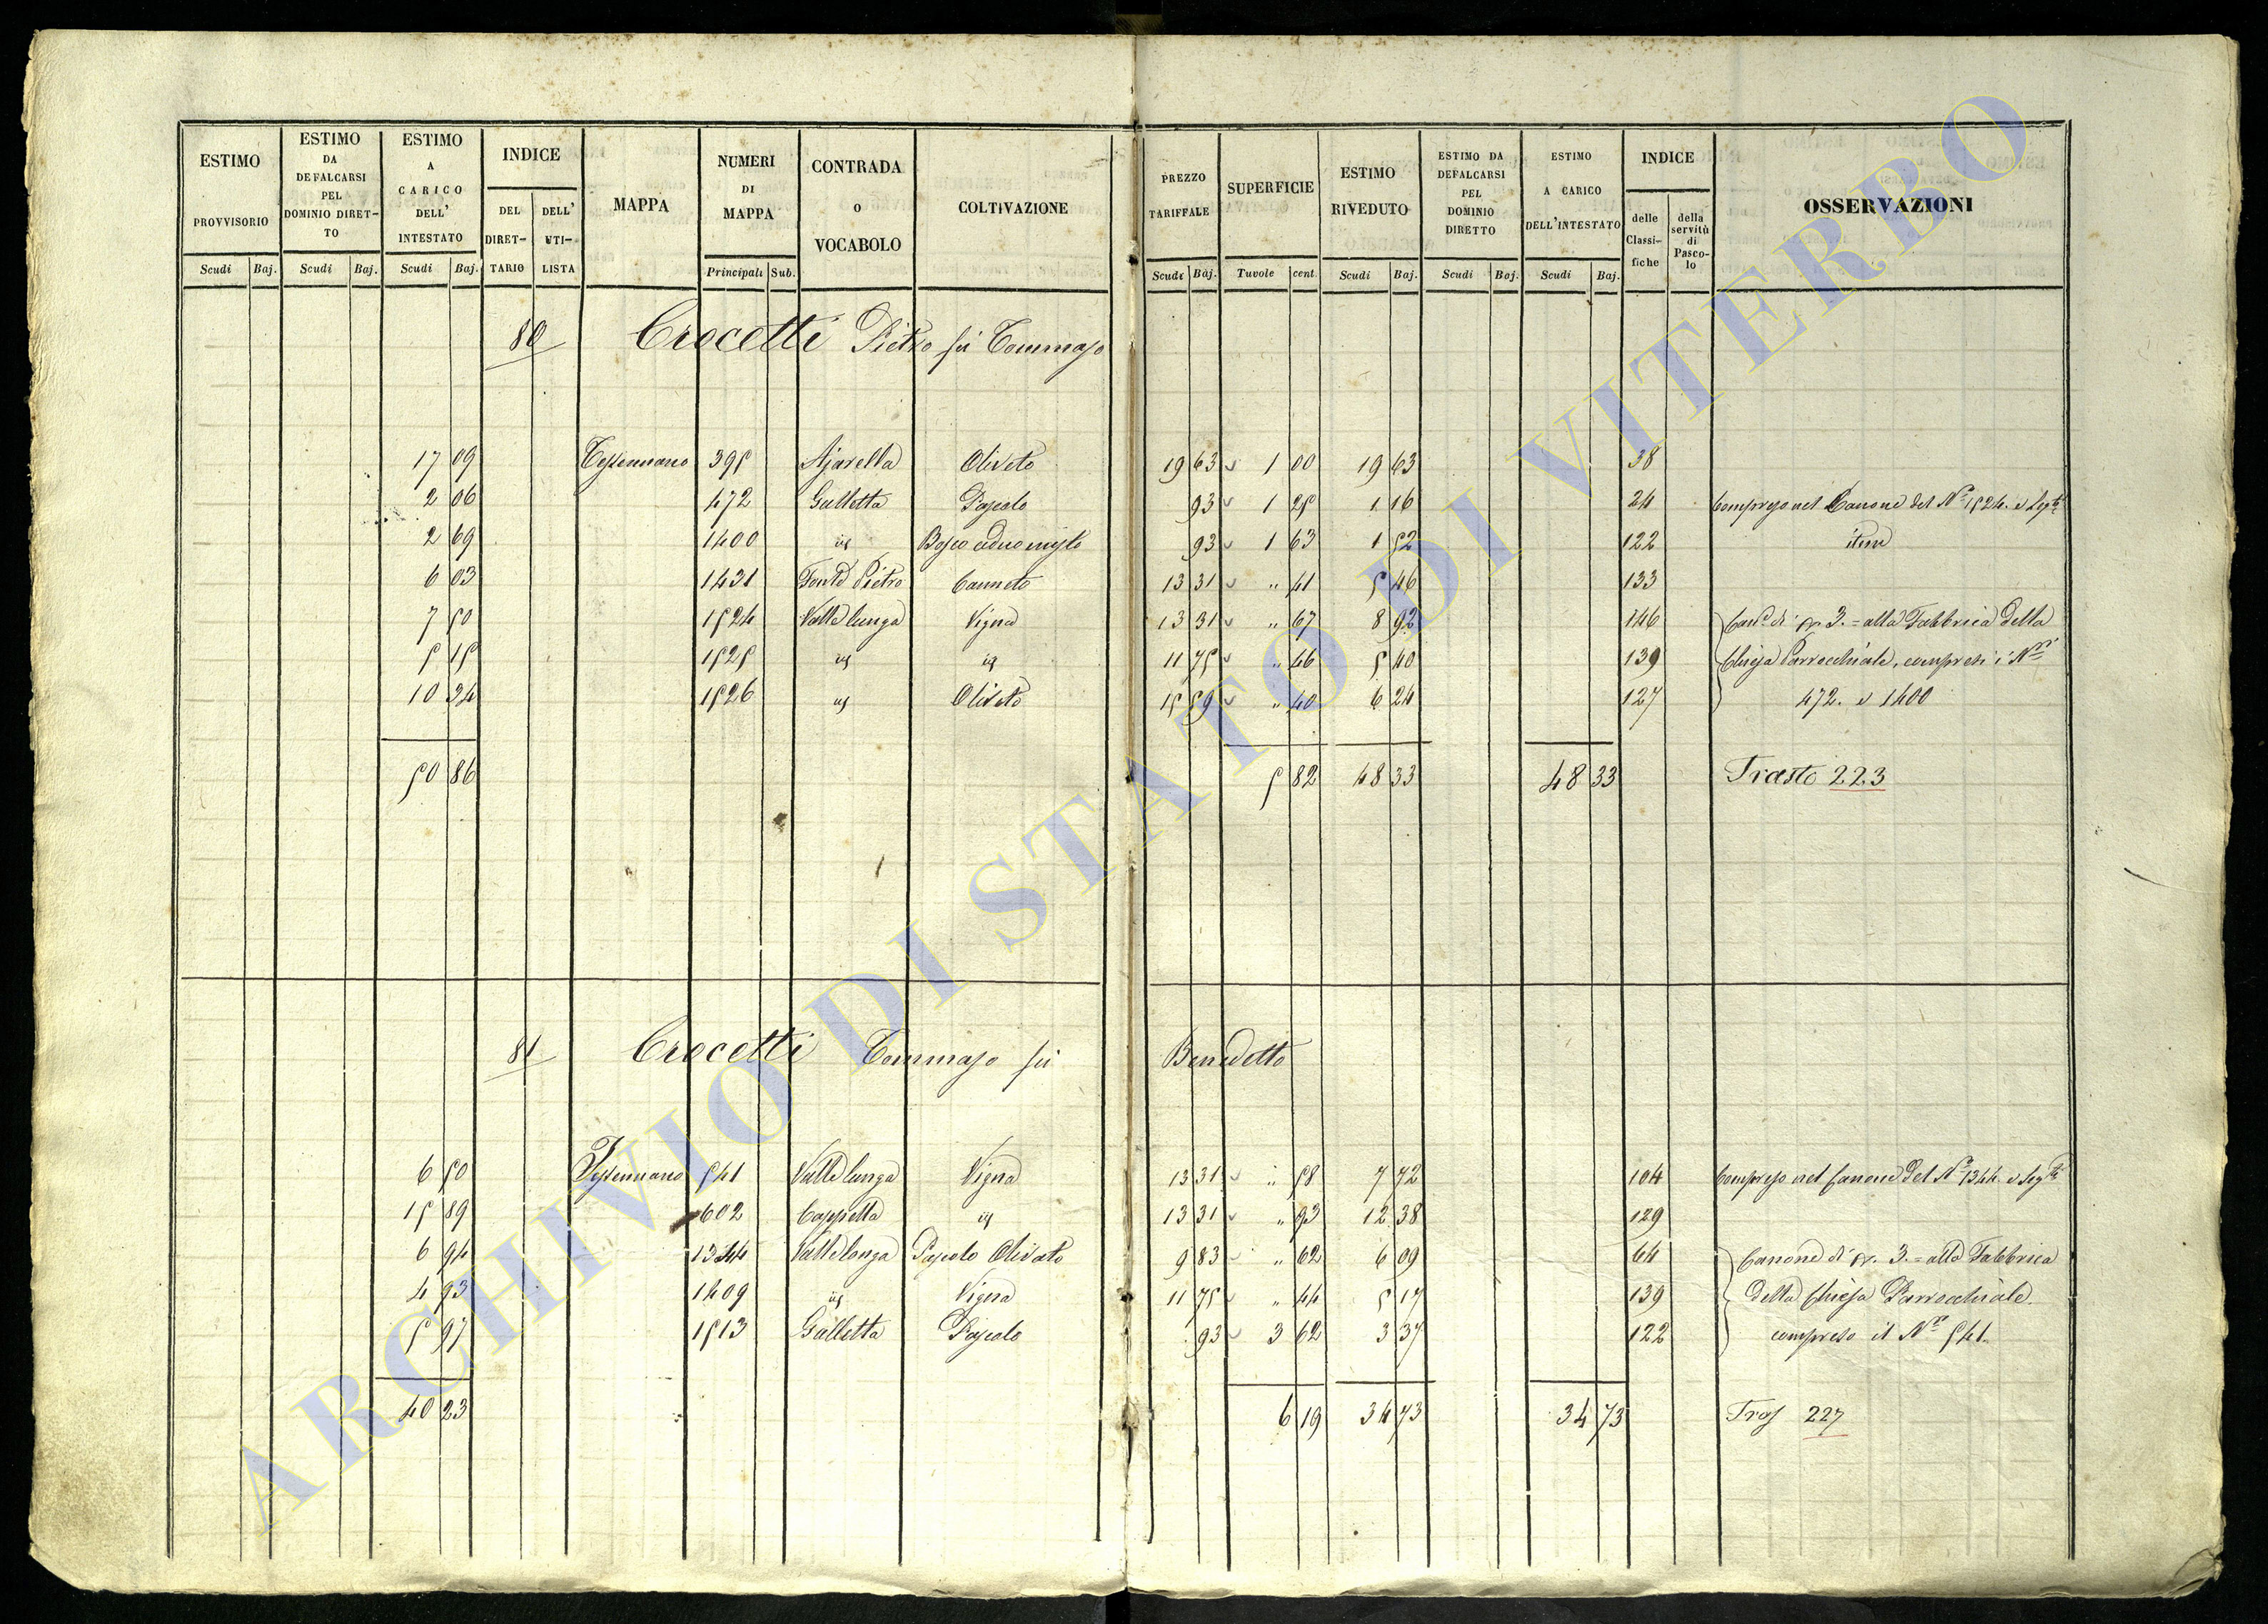 ESTIMO PROVVISORIO | ESTIMO DA DEFALCARSI PEL DOMINIO DIRETTO | ESTIMO A CARICO DELL' INTESTATO | INDICE DEL DIRETTARIO | DELL' UTILISTA | MAPPA | NUMERI DI MAPPA | CONTRADA O VOCABOLO | COLTIVAZIONE | PREZZO TARIFFALE | SUPERFICIE | ESTIMO RIVEDUTO | ESTIMO DA DEFALCARSI PEL DOMINIO DIRETTO | ESTIMO A CARICO DELL'INTESTATO | INDICE delle Classifiche | della servitù di Pascolo | OSSERVAZIONI
Scudi Baj. | Scudi Baj. | Scudi Baj. | Principali Sub. | Scudi Baj. | Tavole cent. | Scudi Baj. | Scudi Baj. | Scudi Baj.
80 Crocetti Pietro fu Tommaso
17 09 Tessennano 395 Ajarella Oliveto 19 63 1 00 19 63 38
2 06 472 Galletta Pascolo 93 1 25 1 16 24 Compreso nel Canone del N.o 1524. e Seg.ti
2 69 1400 id Bosco ceduo misto 93 1 63 1 52 122 item
6 03 1431 Fonte Pietro Canneto 13 31 " 41 5 46 133
7 50 1524 Valle lunga Vigna 13 31 " 67 8 92 146 Can.e di sc. 3.= alla Fabbrica della
5 15 1525 id id 11 75 " 46 5 40 139 Chiesa Parrocchiale, compresi i N.ri
10 34 1526 id Oliveto 15 59 " 40 6 24 127 472. e 1400
50 86 5 82 48 33 48 33 Trasto 223
81 Crocetti Tommaso fu Benedetto
6 50 Tessennano 541 Valle lunga Vigna 13 31 " 58 7 72 104 Compreso nel Canone del N.o 1344. e Seg.ti
15 89 602 Cappella id 13 31 " 93 12 38 129
6 94 1344 Valle longa Pascolo Olivato 9 83 " 62 6 09 64 Canone di sc. 3.= alla Fabbrica
4 93 1409 id Vigna 11 75 " 44 5 17 139 della Chiesa Parrocchiale.
5 97 1513 Galletta Pascolo 93 3 62 3 37 122 compreso il N.ro 541.
40 23 6 19 34 73 34 73 Tras 227
ARCHIVIO DI STATO DI VITERBO